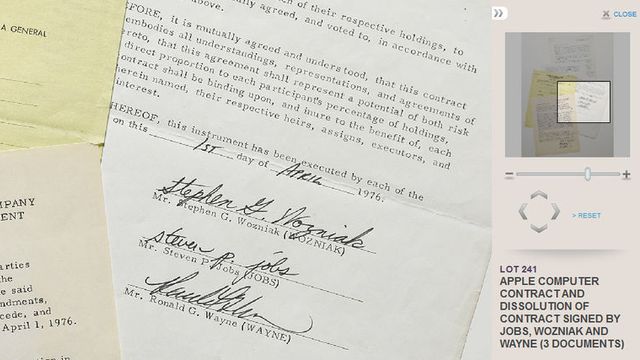 A GENERAL
MPANY
ENT
arties
the
e said
ndments,
cede, and
April 1, 1976.
ion in
of their respective holdings, to
ally agreed, and voted to, in accordance with
above.
FORE, it is mutually agreed and understood, that this contract
embodies all understandings, representations, and agreements of
reto, that this agreement shall represent a potential of both risk
direct proportion to each participants percentage of holdings,
ontract shall be binding upon, and inure to the benefit of, each
herein named, their respective heirs, assigns, executors, and
interest.
HEREOF, this instrument has been executed by each of the
on this 1ST day of APRIL 1976.
Stephen G. Wozniak
Mr. Stephen G. Wozniak (WOZNIAK)
steven p. jobs
Mr. Steven P. Jobs (JOBS)
Mr. Ronald G. Wayne (WAYNE)
CLOSE
> RESET
LOT 241
APPLE COMPUTER
CONTRACT AND
DISSOLUTION OF
CONTRACT SIGNED BY
JOBS, WOZNIAK AND
WAYNE (3 DOCUMENTS)